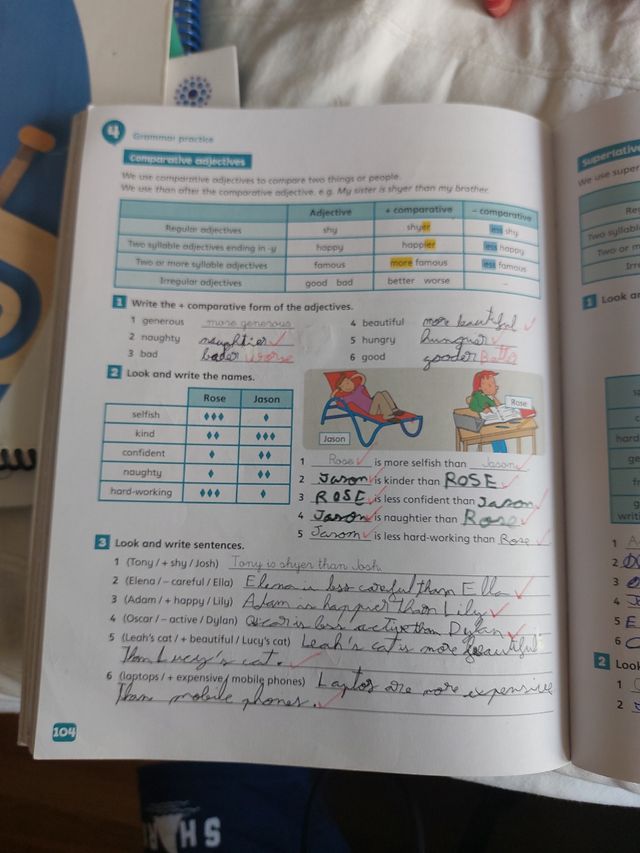 4 Grammar practice
Comparative adjectives
We use comparative adjectives to compare two things or people.
We use than after the comparative adjective, e.g. My sister is shyer than my brother.
Adjective + comparative – comparative
Regular adjectives shy shyer less shy
Two syllable adjectives ending in -y happy happier less happy
Two or more syllable adjectives famous more famous less famous
Irregular adjectives good bad better worse –
1 Write the + comparative form of the adjectives.
1 generous more generous
2 naughty naughtier
3 bad bader worse
4 beautiful more beautiful
5 hungry
6 good gooder
2 Look and write the names.
Rose Jason
selfish
kind
confident
naughty
hard-working
Jason
Rose
1 Rose is more selfish than Jason
2 Jason is kinder than ROSE
3 ROSE is less confident than Jason
4 Jason is naughtier than Rose
5 Jason is less hard-working than Rose
3 Look and write sentences.
1 (Tony / + shy / Josh) Tony is shyer than Josh
2 (Elena / – careful / Ella) Elena is less careful than Ella
3 (Adam / + happy / Lily) Adam is happier than Lily
4 (Oscar / – active / Dylan) Oscar is less active than Dylan
5 (Leah's cat / + beautiful / Lucy's cat) Leah's cat is more beautiful
than Lucy's cat.
6 (laptops / + expensive / mobile phones) Laptos are more expensive
than mobile phones.
104
Superlative
We use super
Two syllabl
Two or m
Irre
1 Look an
hard
ge
fr
writi
1
2
3
4
5 E
6
2 Look
1
2
SHA